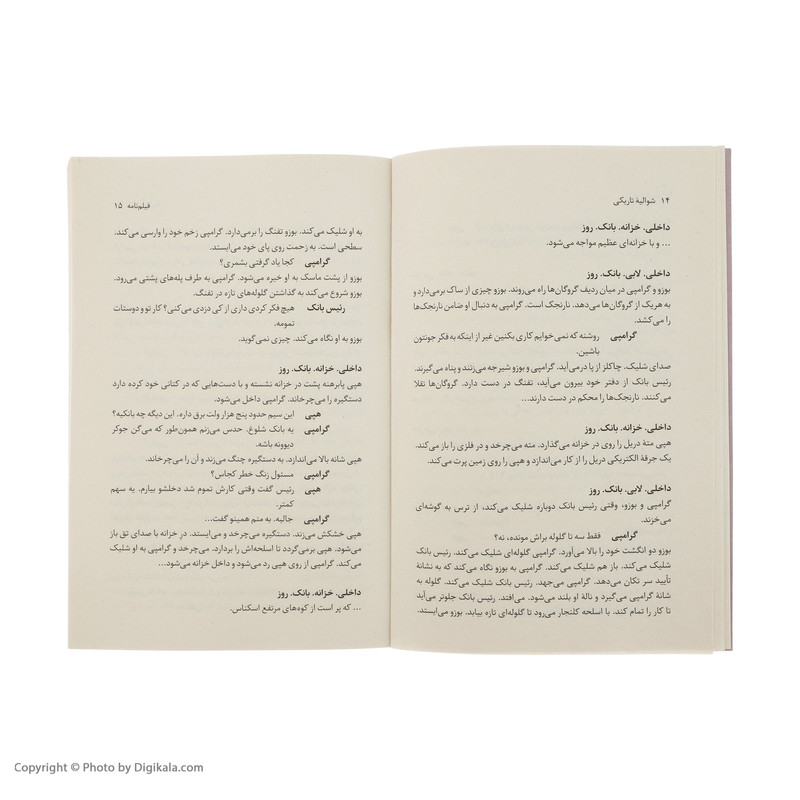 ۱۴ شوالیهٔ تاریکی
داخلی. خزانه. بانک. روز
... و با خزانه‌ای عظیم مواجه می‌شود.
داخلی. لابی. بانک. روز
بوزو و گرامپی در میان ردیف گروگان‌ها راه می‌روند. بوزو چیزی از ساک برمی‌دارد و
به هریک از گروگان‌ها می‌دهد. نارنجک است. گرامپی به دنبال او ضامن نارنجک‌ها
را می‌کشد.
گرامپی روشنه که نمی‌خوایم کاری بکنین غیر از اینکه به فکر جونتون
باشین.
صدای شلیک. چاکلز از پا در می‌آید. گرامپی و بوزو شیرجه می‌زنند و پناه می‌گیرند.
رئیس بانک از دفتر خود بیرون می‌آید، تفنگ در دست دارد. گروگان‌ها تقلا
می‌کنند. نارنجک‌ها را محکم در دست دارند...
داخلی. خزانه. بانک. روز
هپی متهٔ دریل را روی در خزانه می‌گذارد. مته می‌چرخد و در فلزی را باز می‌کند.
یک جرقهٔ الکتریکی دریل را از کار می‌اندازد و هپی را روی زمین پرت می‌کند.
داخلی. لابی. بانک. روز
گرامپی و بوزو، وقتی رئیس بانک دوباره شلیک می‌کند، از ترس به گوشه‌ای
می‌خزند.
گرامپی فقط سه تا گلوله براش مونده، نه؟
بوزو دو انگشت خود را بالا می‌آورد. گرامپی گلوله‌ای شلیک می‌کند. رئیس بانک
شلیک می‌کند. باز هم شلیک می‌کند. گرامپی به بوزو نگاه می‌کند که به نشانهٔ
تأیید سر تکان می‌دهد. گرامپی می‌جهد. رئیس بانک شلیک می‌کند. گلوله به
شانهٔ گرامپی می‌گیرد و نالهٔ او بلند می‌شود. می‌افتد. رئیس بانک جلوتر می‌آید
تا کار را تمام کند. با اسلحه کلنجار می‌رود تا گلوله‌ای تازه بیابد. بوزو می‌ایستد.
فیلم‌نامه ۱۵
به او شلیک می‌کند. بوزو تفنگ را برمی‌دارد. گرامپی زخم خود را وارسی می‌کند.
سطحی است. به زحمت روی پای خود می‌ایستد.
گرامپی کجا یاد گرفتی بشمری؟
بوزو از پشت ماسک به او خیره می‌شود. گرامپی به طرف پله‌های پشتی می‌رود.
بوزو شروع می‌کند به گذاشتن گلوله‌های تازه در تفنگ.
رئیس بانک هیچ فکر کردی داری از کی دزدی می‌کنی؟ کار تو و دوستات
تمومه.
بوزو به او نگاه می‌کند. چیزی نمی‌گوید.
داخلی. خزانه. بانک. روز
هپی پابرهنه پشت در خزانه نشسته و با دست‌هایی که در کتانی خود کرده دارد
دستگیره را می‌چرخاند. گرامپی داخل می‌شود.
هپی این سیم حدود پنج هزار ولت برق داره. این دیگه چه بانکیه؟
گرامپی یه بانک شلوغ. حدس می‌زنم همون‌طور که می‌گن جوکر
دیوونه باشه.
هپی شانه بالا می‌اندازد. به دستگیره چنگ می‌زند و آن را می‌چرخاند.
گرامپی مسئول زنگ خطر کجاس؟
هپی رئیس گفت وقتی کارش تموم شد دخلشو بیارم. یه سهم
کمتر.
گرامپی جالبه. به منم همینو گفت...
هپی خشکش می‌زند. دستگیره می‌چرخد و می‌ایستد. در خزانه با صدای تق باز
می‌شود، هپی برمی‌گردد تا اسلحه‌اش را بردارد. می‌چرخد و گرامپی به او شلیک
می‌کند. گرامپی از روی هپی رد می‌شود و داخل خزانه می‌شود...
داخلی. خزانه. بانک. روز
... که پر است از کوه‌های مرتفع اسکناس.
Copyright © Photo by Digikala.com